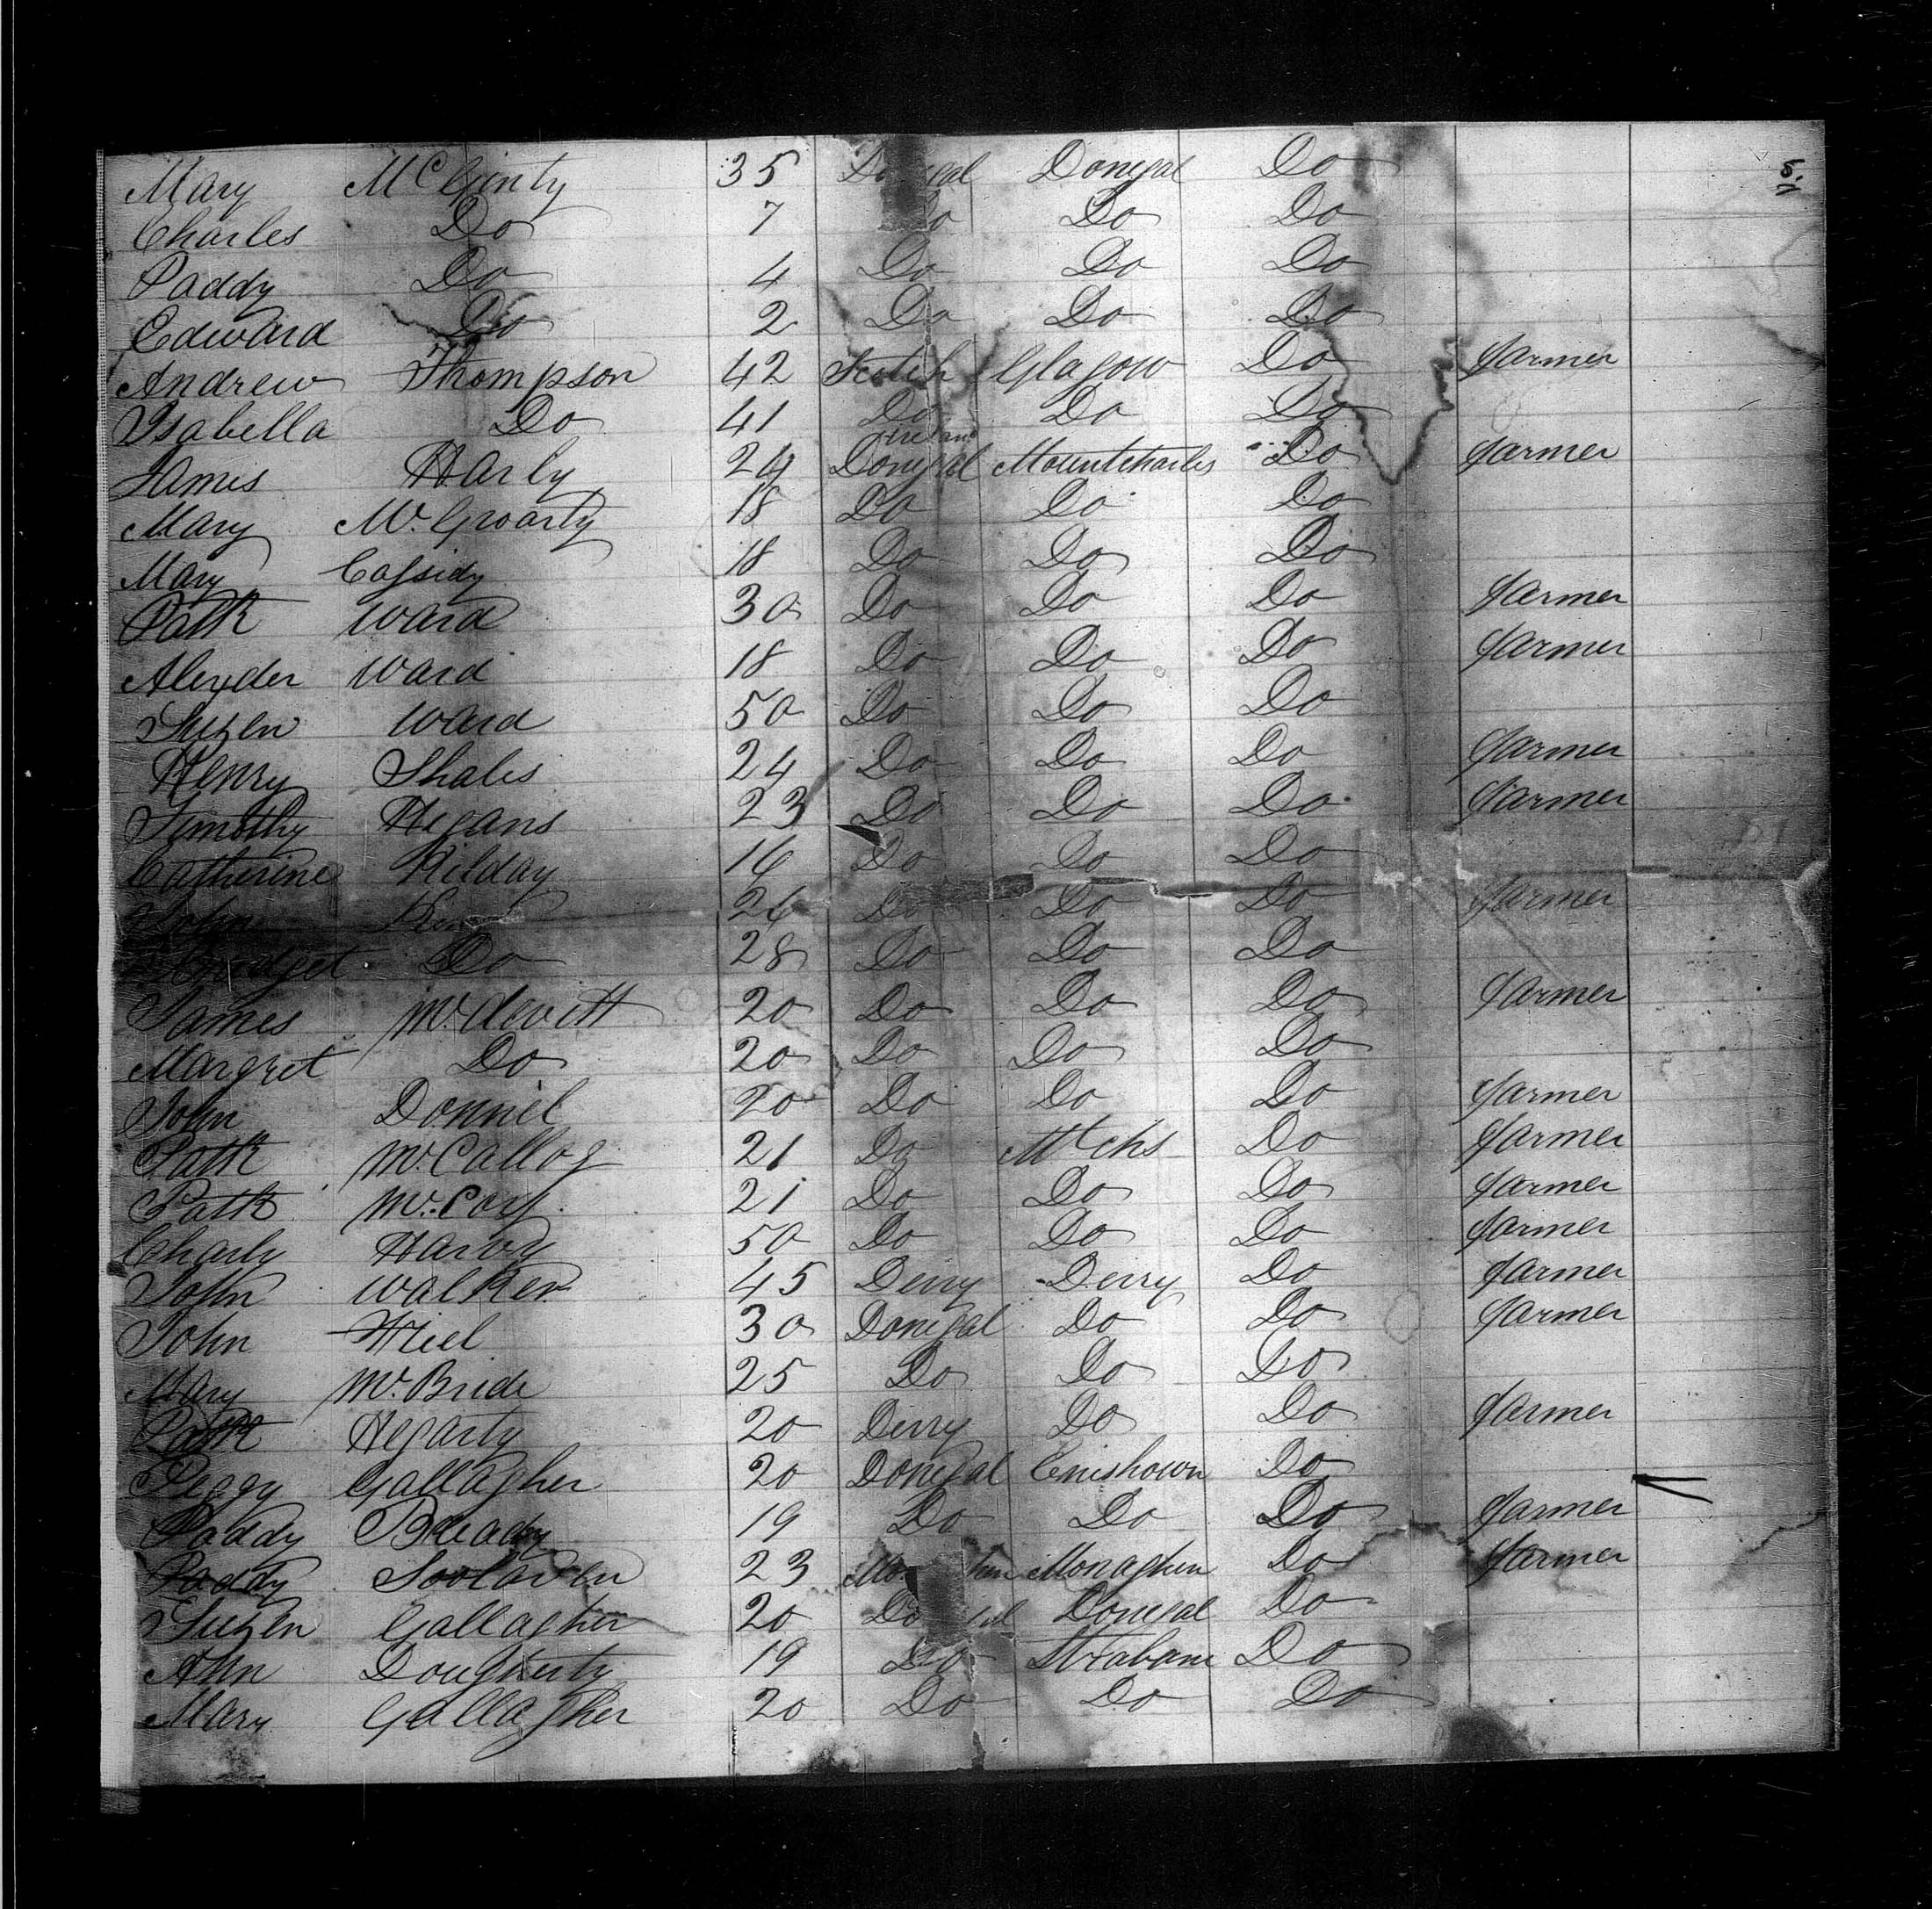 5.
Mary McGinty 35 Donegal Donegal Do
Charles Do 7 Do Do Do
Paddy Do 4 Do Do Do
Edward Do 2 Do Do Do
Andrew Thompson 42 Scotch Glagow Do farmer
Isabella Do 41 Do Do Do
Ireland
James Harly 24 Donegal Mountcharles Do farmer
Mary Mc. Groarty 18 Do Do Do
Mary Cassidy 18 Do Do Do
Patk Ward 30 Do Do Do farmer
Alexder Ward 18 Do Do Do farmer
Suzen Ward 50 Do Do Do
Henry Shales 24 Do Do Do farmer
Timothy Hegans 23 Do Do Do farmer
Catherine Kilday 16 Do Do Do
John 26 Do Do Do farmer
Bridget Do 28 Do Do Do
James Mc. devitt 20 Do Do Do farmer
Margret Do 20 Do Do Do
John Donniel 20 Do Do Do farmer
Patk Mc. Callog 21 Do Mt chs Do farmer
Patk 21 Do Do Do farmer
Charly Harvy 50 Do Do Do farmer
John Walker 45 Derry Derry Do farmer
John Friel 30 Donegal Do Do farmer
Mary Mc. Bride 25 Do Do Do
Patk Hegarty 20 Derry Do Do farmer
Peggy Gallagher 20 Donegal Enishown Do
Paddy 19 Do Do Do farmer
Paddy 23 Monaghen Do farmer
Suzen Gallagher 20 Donegal Donegal Do
Ann Dougherty 19 Do Strabane Do
Mary Gallagher 20 Do Do Do